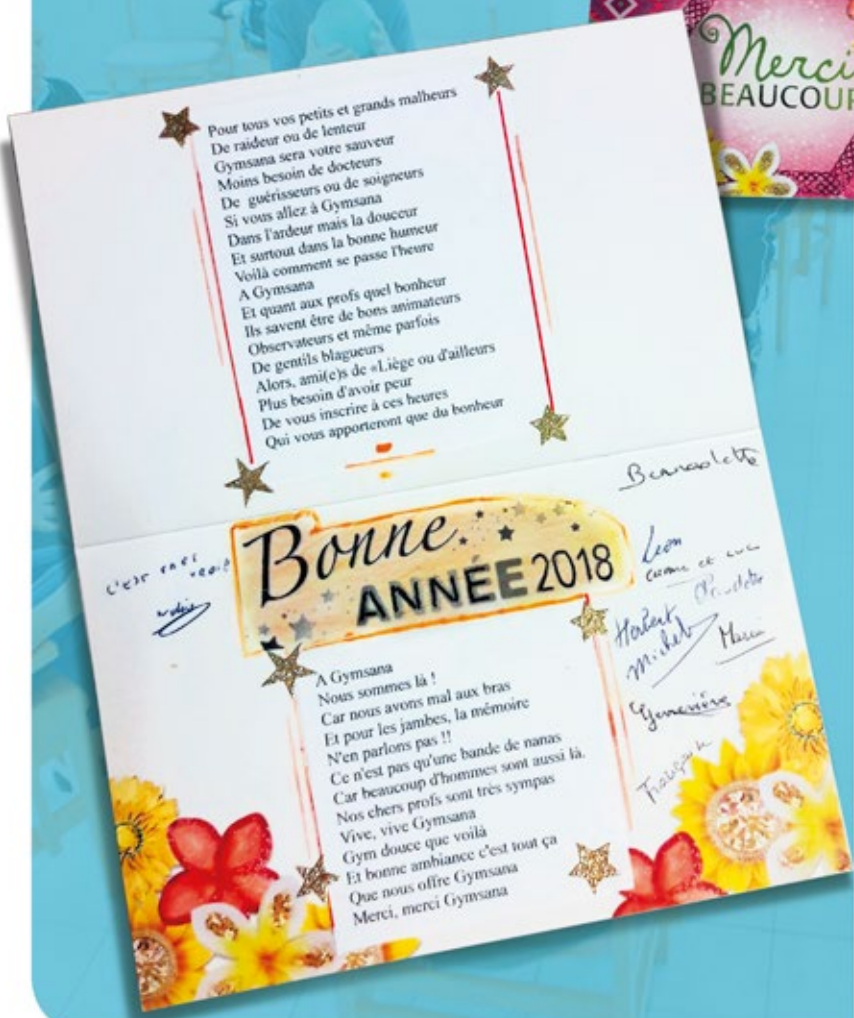 Merci
BEAUCOUP
Pour tous vos petits et grands malheurs
De raideur ou de lenteur
Gymsana sera votre sauveur
Moins besoin de docteurs
De guérisseurs ou de soigneurs
Si vous allez à Gymsana
Dans l'ardeur mais la douceur
Et surtout dans la bonne humeur
Voilà comment se passe l'heure
A Gymsana
Et quant aux profs quel bonheur
Ils savent être de bons animateurs
Observateurs et même parfois
De gentils blagueurs
Alors, ami(e)s de «Liège ou d'ailleurs
Plus besoin d'avoir peur
De vous inscrire à ces heures
Qui vous apporteront que du bonheur
Bernadette
c'est très
Bonne
ANNÉE 2018
Léon
et Luc
Claudette
Herbert
Michel
Merci
Geneviève
A Gymsana
Nous sommes là !
Car nous avons mal aux bras
Et pour les jambes, la mémoire
N'en parlons pas !!
Ce n'est pas qu'une bande de nanas
Car beaucoup d'hommes sont aussi là.
Nos chers profs sont très sympas
Vive, vive Gymsana
Gym douce que voilà
Et bonne ambiance c'est tout ça
Que nous offre Gymsana
Merci, merci Gymsana